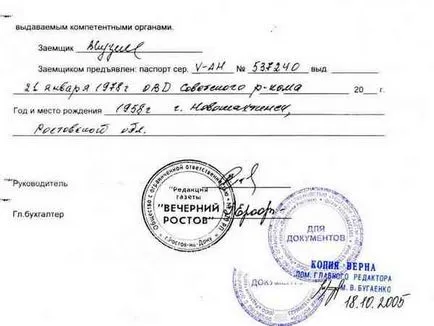 выдаваемым компетентными органами.
Заемщик
Заемщиком предъявлен: паспорт сер. V-АН № 537240 выд
26 января 1978г ОВД Советского р-кома 20 г.
Год и место рождения 1958г г. Новошахтинск,
Ростовской обл.
Руководитель
Гл.бухгалтер
Общество с ограниченной ответственностью
"Редакция
газеты
"ВЕЧЕРНИЙ
РОСТОВ"
г.Ростов-на-Дону
ДЛЯ
ДОКУМЕНТОВ
КОПИЯ ВЕРНА
ПОМ. ГЛАВНОГО РЕДАКТОРА
М.В.БУГАЕНКО
18.10.2005